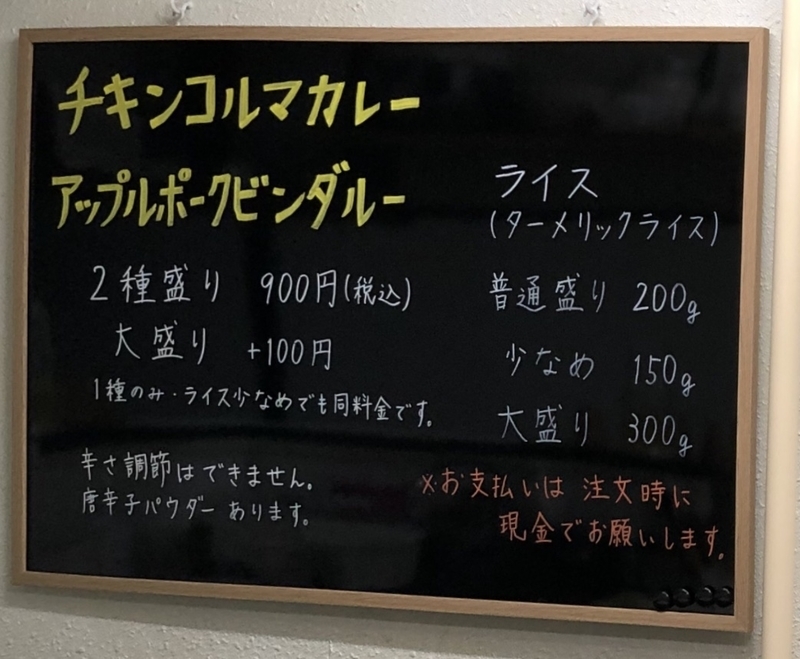 チキンコルマカレー
アップルポークビンダルー
2種盛り 900円(税込)
大盛り +100円
1種のみ・ライス少なめでも同料金です。
辛さ調節はできません。
唐辛子パウダー あります。
ライス
(ターメリックライス)
普通盛り 200g
少なめ 150g
大盛り 300g
※お支払いは 注文時に
現金でお願いします。